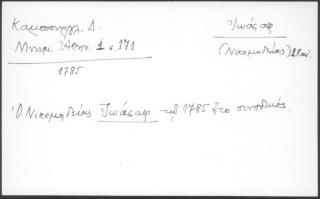 Καμπούρογλ. Δ.
Μνημ. Ἀθην. 1 σ. 171
1785
Ἰωάσαφ
(Νικομηδείας) 18 αἰ.
Ὁ Νικομηδείας Ἰωάσαφ τῷ 1785 ἦτο συνοδικός.